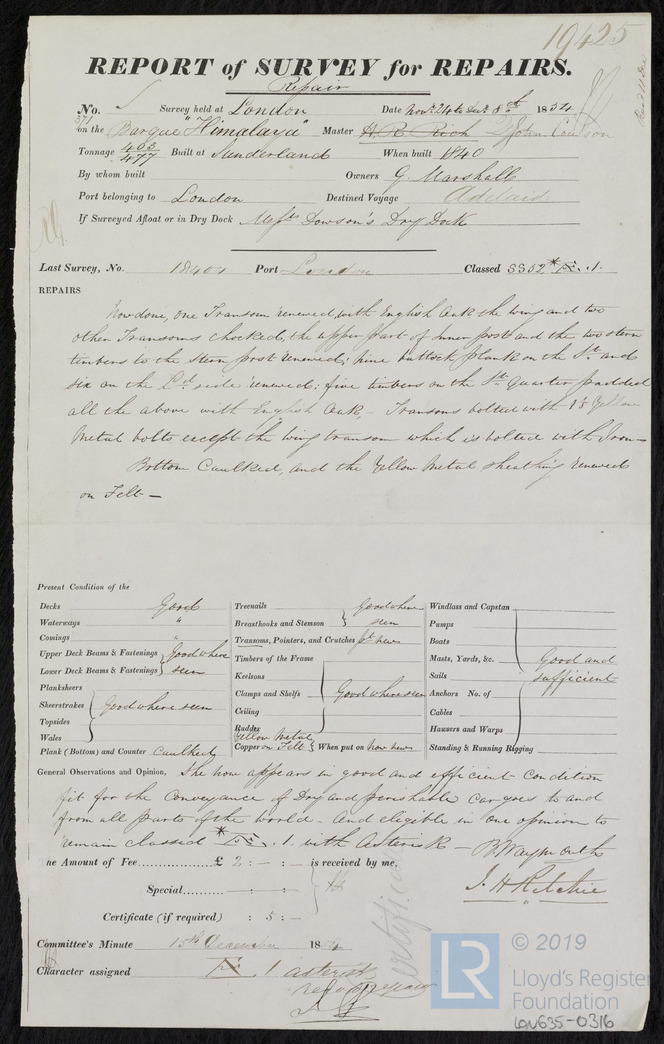 19425
REPORT of SURVEY for REPAIRS.
Repair
No. 371 Survey held at London Date Novr. 24 to Decr 8th 1854
on the Barque "Himalaya" Master H. R. Roch John Coulson
Tonnage 403/477 Built at Sunderland When built 1840
By whom built Owners G. Marshall
Port belonging to London Destined Voyage Adelaide
If Surveyed Afloat or in Dry Dock Dowson's Dry Dock
Last Survey, No. 18404 Port London Classed SS52 * Æ .1.
REPAIRS
Now done, one Transom renewed, with English Oak the wing and two
other Transoms chocked, the upper part of inner post and the two stern
timbers to the stern post renewed; nine buttock plank on the St. and
six on the Pt side renewed; five timbers on the St. Quarter padded
all the above with English Oak. Transoms bolted with 1⅛ Yellow
Metal bolts except the wing transom which is bolted with Iron—
Bottom Caulked, and the Yellow Metal sheathing renewed
on Felt—
Present Condition of the
Decks Good
Waterways "
Comings "
Upper Deck Beams & Fastenings } Good where
Lower Deck Beams & Fastenings } seen
Planksheers
Sheerstrakes } Good where seen
Topsides
Wales
Plank (Bottom) and Counter Caulked
Treenails Good where
Breasthooks and Stemson } seen
Transoms, Pointers, and Crutches pt new
Timbers of the Frame
Keelsons
Clamps and Shelfs } Good where seen
Ceiling
Rudder
Yellow Metal
Copper on Felt } When put on Now new
Windlass and Capstan
Pumps
Boats
Masts, Yards, &c. Good and
Sails sufficient
Anchors No. of
Cables
Hawsers and Warps
Standing & Running Rigging
General Observations and Opinion, She now appears in good and efficient condition
fit for the Conveyance of Dry and perishable cargoes to and
from all parts of the world - And eligible in our opinion to
remain classed * Æ .1. with Asterisk — B Waymouth
he Amount of Fee £ 2 : - : - is received by me,
J. H. Ritchie
Special - : - : -
Certificate (if required) : 5 : -
certificate
Committee's Minute 15th December 1854
Character assigned Æ 1 asterisk
© 2019
LR
Lloyd's Register
Foundation
LON635-0316